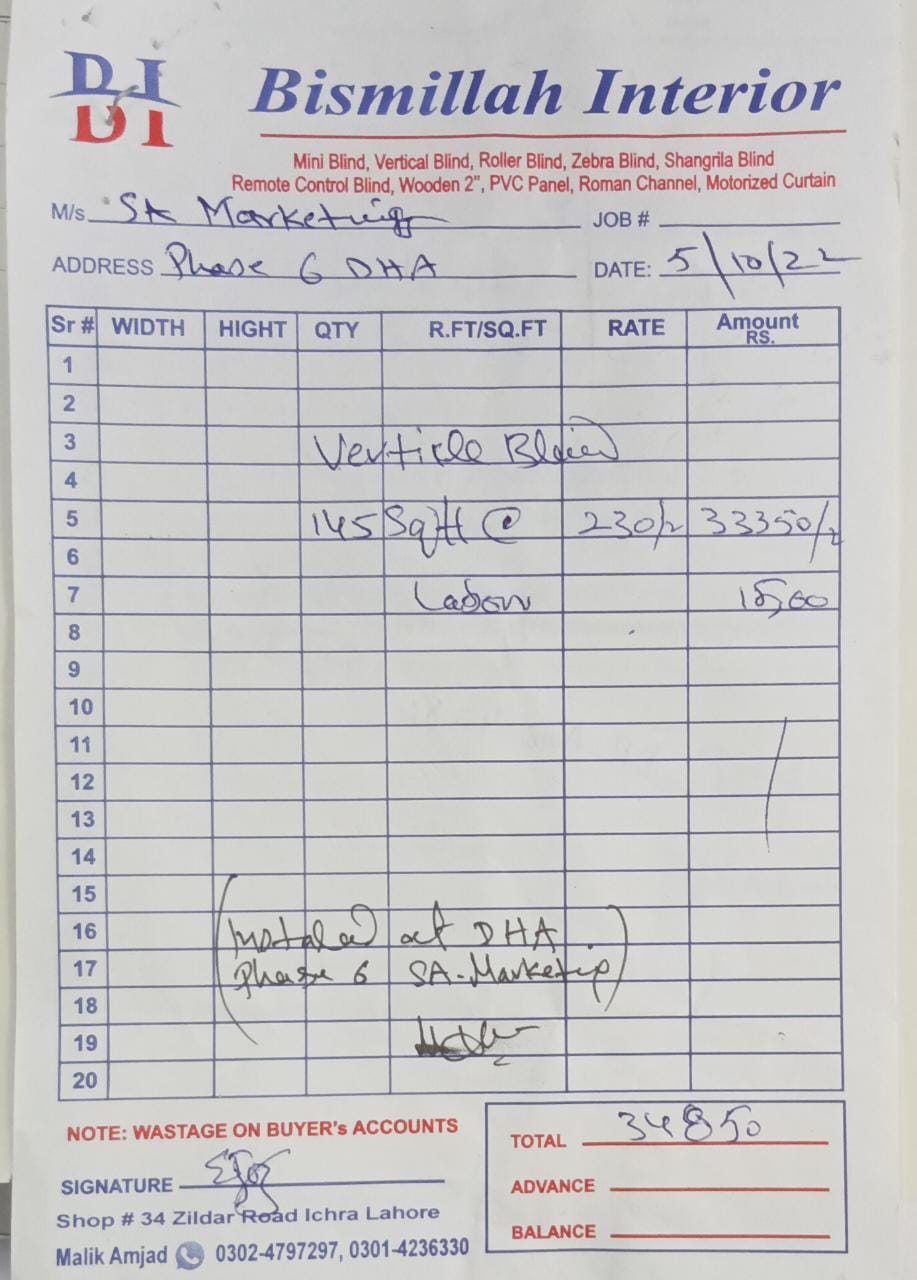 DI
DI
Bismillah Interior
Mini Blind, Vertical Blind, Roller Blind, Zebra Blind, Shangrila Blind
Remote Control Blind, Wooden 2", PVC Panel, Roman Channel, Motorized Curtain
M/s. SA Marketing JOB #
ADDRESS Phase 6 DHA DATE: 5/10/22
Sr # WIDTH HIGHT QTY R.FT/SQ.FT RATE Amount RS.
1
2
3 Verticle Blind
4
5 145 Sqft @ 230/- 33350/-
6
7 Labour 15,00
8
9
10
11
12
13
14
15
16 (Instaled at DHA
17 Phase 6 SA-Marketing)
18
19
20
NOTE: WASTAGE ON BUYER's ACCOUNTS
TOTAL 34850
SIGNATURE
ADVANCE
Shop # 34 Zildar Road Ichra Lahore
BALANCE
Malik Amjad 0302-4797297, 0301-4236330